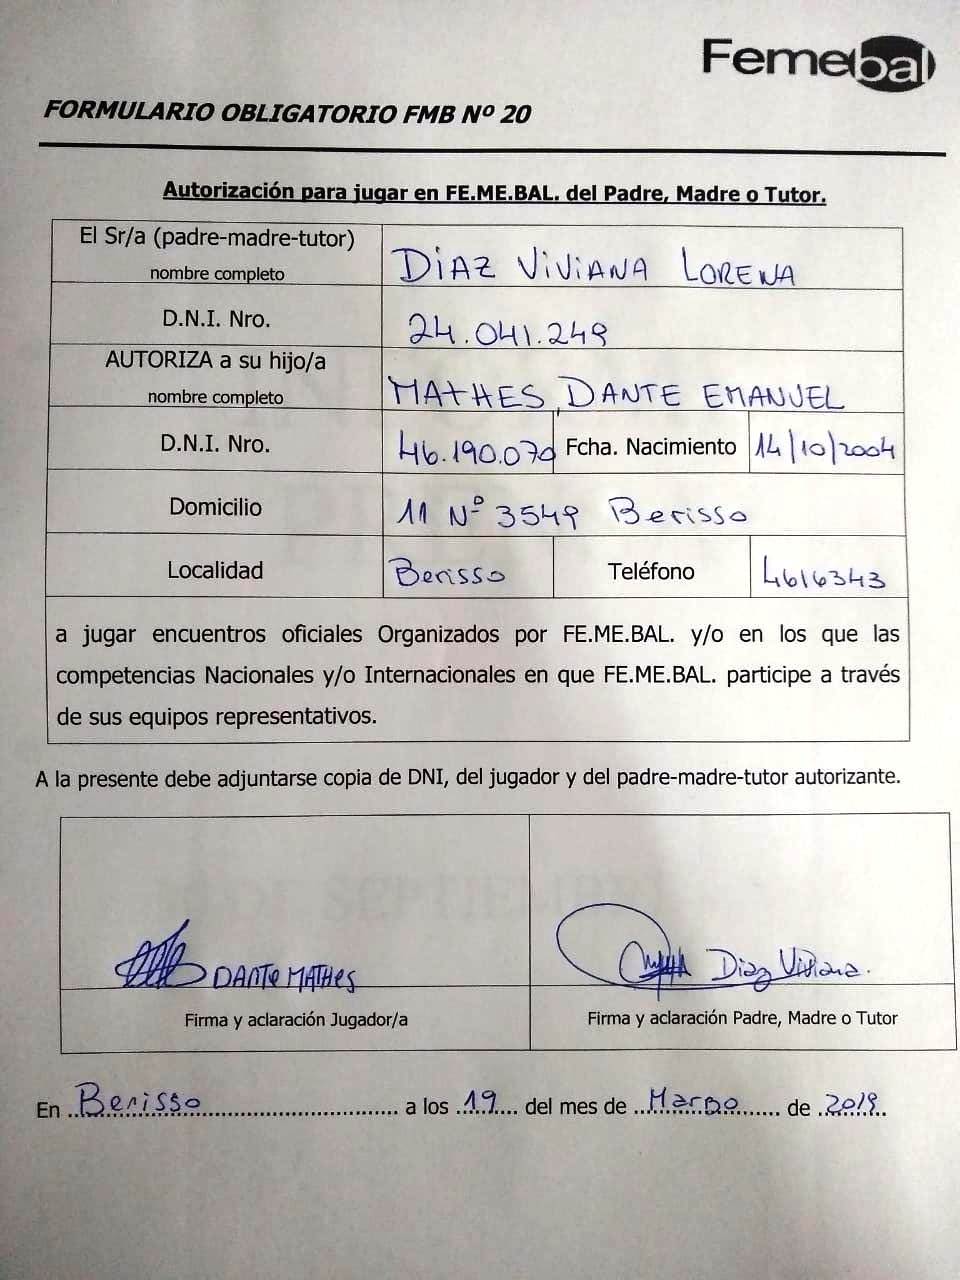 Femebal
FORMULARIO OBLIGATORIO FMB Nº 20
Autorización para jugar en FE.ME.BAL. del Padre, Madre o Tutor.
El Sr/a (padre-madre-tutor)
nombre completo
DiAZ ViViANA LORENA
D.N.I. Nro.
24.041.249
AUTORIZA a su hijo/a
nombre completo
MATHES, DANTE EMANUEL
D.N.I. Nro.
46.190.070
Fcha. Nacimiento
14/10/2004
Domicilio
11 Nº 3549 Berisso
Localidad
Berisso
Teléfono
4616343
a jugar encuentros oficiales Organizados por FE.ME.BAL. y/o en los que las
competencias Nacionales y/o Internacionales en que FE.ME.BAL. participe a través
de sus equipos representativos.
A la presente debe adjuntarse copia de DNI, del jugador y del padre-madre-tutor autorizante.
DANTE MATHES
Diaz Viviana.
Firma y aclaración Jugador/a
Firma y aclaración Padre, Madre o Tutor
En Berisso a los 19 del mes de Marzo de 2019